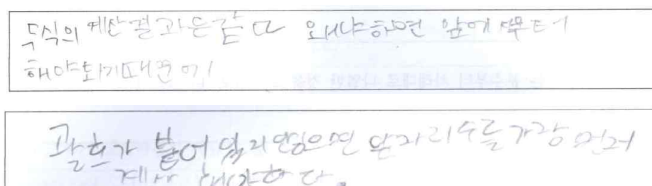 두식의 계산결과는같다 왜냐하면 앞에서부터
해야되기때문에
괄호가 붙어 있지 안으면 앞자리수를 가장 먼저
계산 해야한다.